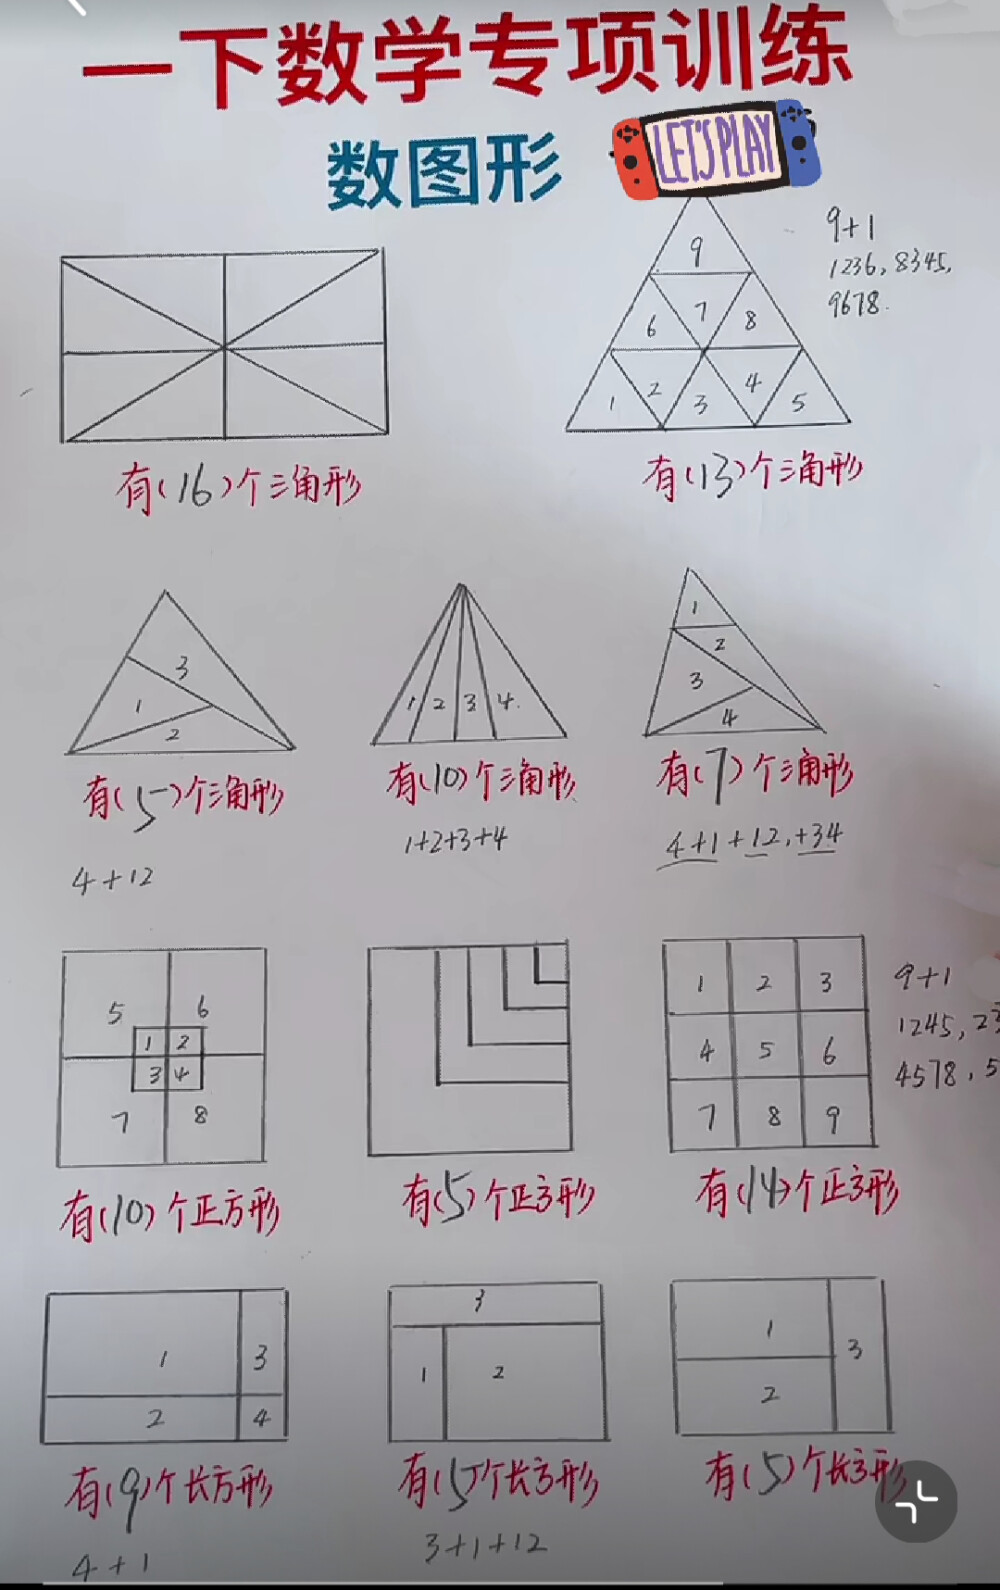 一下数学专项训练
数图形
LET'S PLAY
9
9+1
1236,8345,
9678.
6 7 8
1 2 3 4 5
有(16)个三角形
有(13)个三角形
3
1
2
1 2 3 4.
1
2
3
4
有(5)个三角形
有(10)个三角形
有(7)个三角形
4+12
1+2+3+4
4+1+12,+34
5 6
1 2
3 4
7 8
1 2 3
4 5 6
7 8 9
9+1
1245,23
4578,5
有(10)个正方形
有(5)个正方形
有(14)个正方形
1 3
2 4
3
1 2
1
3
2
有(9)个长方形
有(5)个长方形
有(5)个长方形
4+1
3+1+12